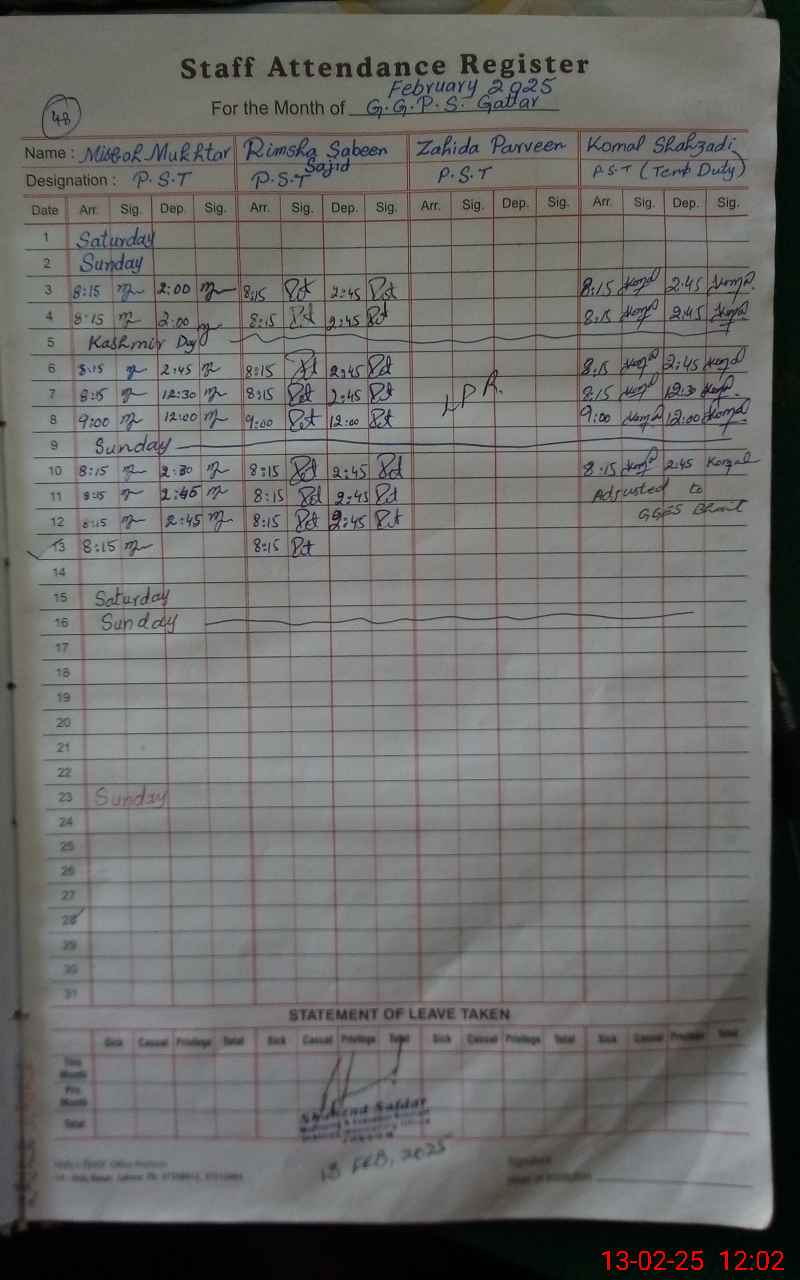 Staff Attendance Register
February 2025
For the Month of G.G.P.S. Gattar
48
Name : Misbah Mukhtar Rimsha Sabeen Sajid Zahida Parveen Komal Shahzadi
Designation : P.S.T P.S.T P.S.T P.S.T (Temp Duty)
Date Arr. Sig. Dep. Sig. Arr. Sig. Dep. Sig. Arr. Sig. Dep. Sig. Arr. Sig. Dep. Sig.
1 Saturday
2 Sunday
3 8:15 2:00 8:15 2:45 8:15 Komal 2:45 Komal
4 8:15 2:00 8:15 2:45 8:15 Komal 2:45 Komal
5 Kashmir Day
6 8:15 2:45 8:15 2:45 8:15 Komal 2:45 Komal
7 8:15 12:30 8:15 2:45 LPR. 8:15 Komal 12:30 Komal
8 9:00 12:00 9:00 12:00 9:00 Komal 12:00 Komal
9 Sunday
10 8:15 2:30 8:15 2:45 8:15 Komal 2:45 Komal
11 8:15 2:45 8:15 2:45 Adjusted to
12 8:15 2:45 8:15 2:45 GGES
13 8:15 8:15
14
15 Saturday
16 Sunday
17
18
19
20
21
22
23 Sunday
24
25
26
27
28
29
30
31
STATEMENT OF LEAVE TAKEN
Sick Casual Privilege Total Sick Casual Privilege Total Sick Casual Privilege Total Sick Casual Privilege Total
This Month
Pre Month
Total
13 FEB, 2025
Signature
13-02-25 12:02